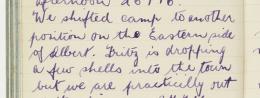 afternoon 26/7/16.
We shifted camp to another
position on the Eastern side
of Albert. Fritz is dropping
a few shells into the town
but we are practically out